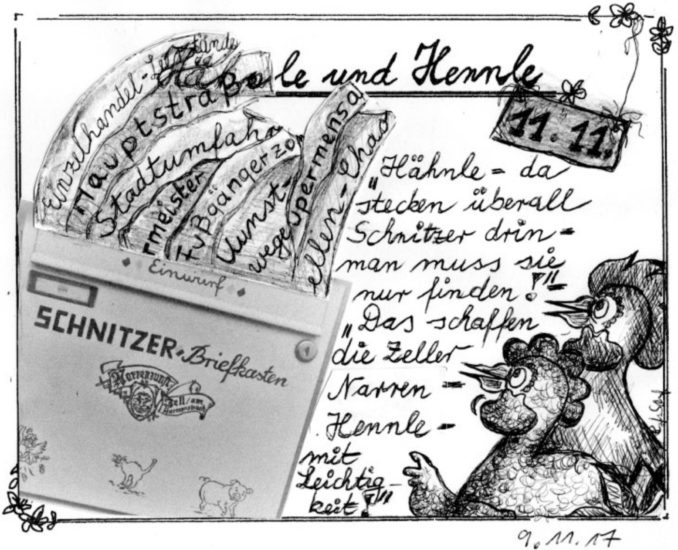 Hähnle und Hennle
11.11.
Einzelhandel-Leerstände
Hauptstraße
Stadtumfahr
rmeister
Fußgängerzo
Kunst-
wege
permensa
ellen-Chao
Einwurf
SCHNITZER-Briefkasten
Narrenzunft
Zell/am
Harmersbach
„Hähnle - da
stecken überall
Schnitzer drin -
man muss sie
nur finden!"
„Das schaffen
die Zeller
Narren -
Hennle -
mit
Leichtig-
keit!"
9.11.17